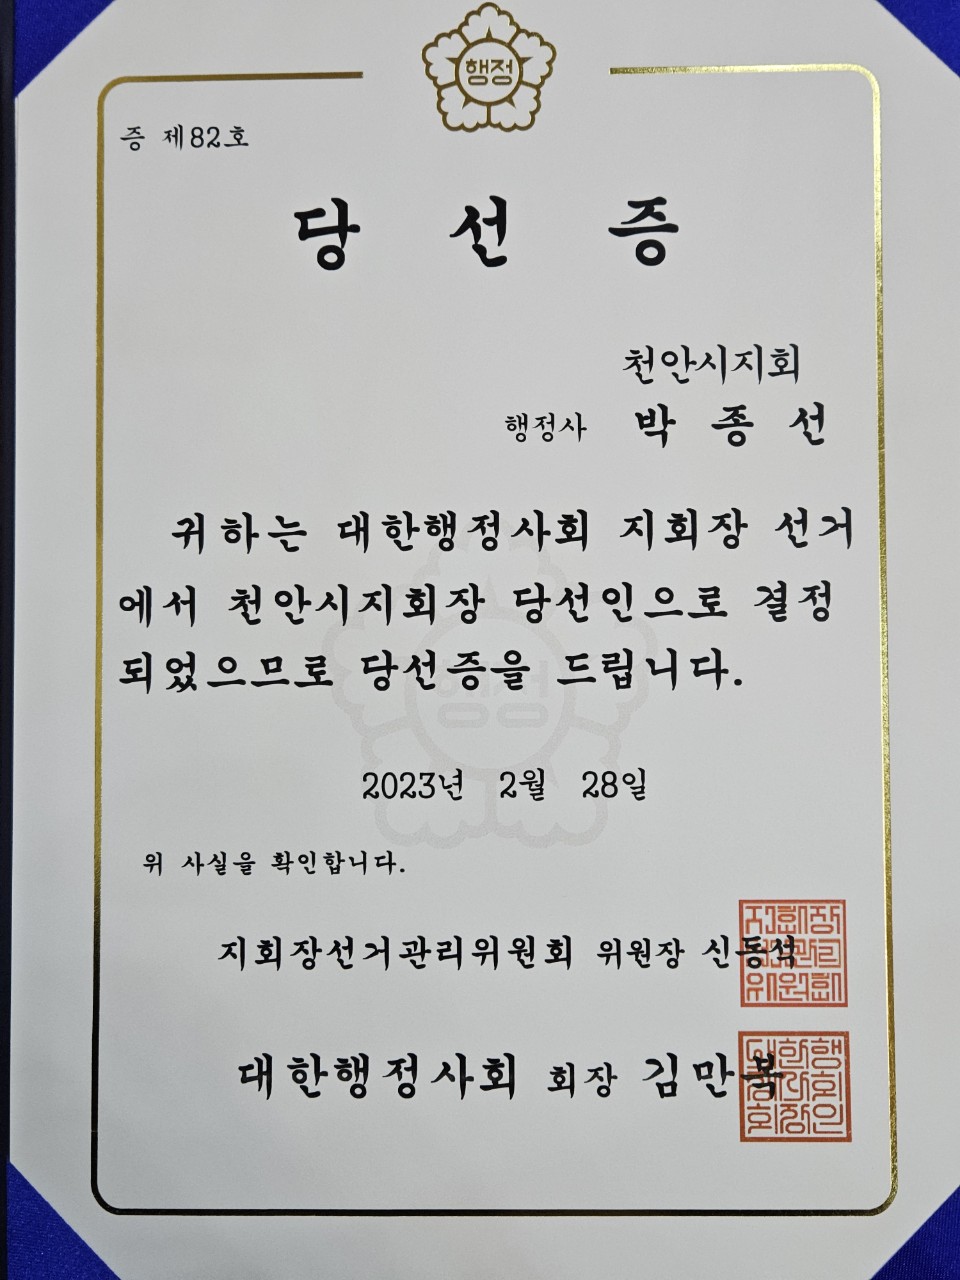 행정
증 제82호
당 선 증
천안시지회
행정사 박 종 선
귀하는 대한행정사회 지회장 선거
에서 천안시지회장 당선인으로 결정
되었으므로 당선증을 드립니다.
행정
2023년 2월 28일
위 사실을 확인합니다.
지회장선거관리위원회 위원장 신동석
대한행정사회 회장 김만복